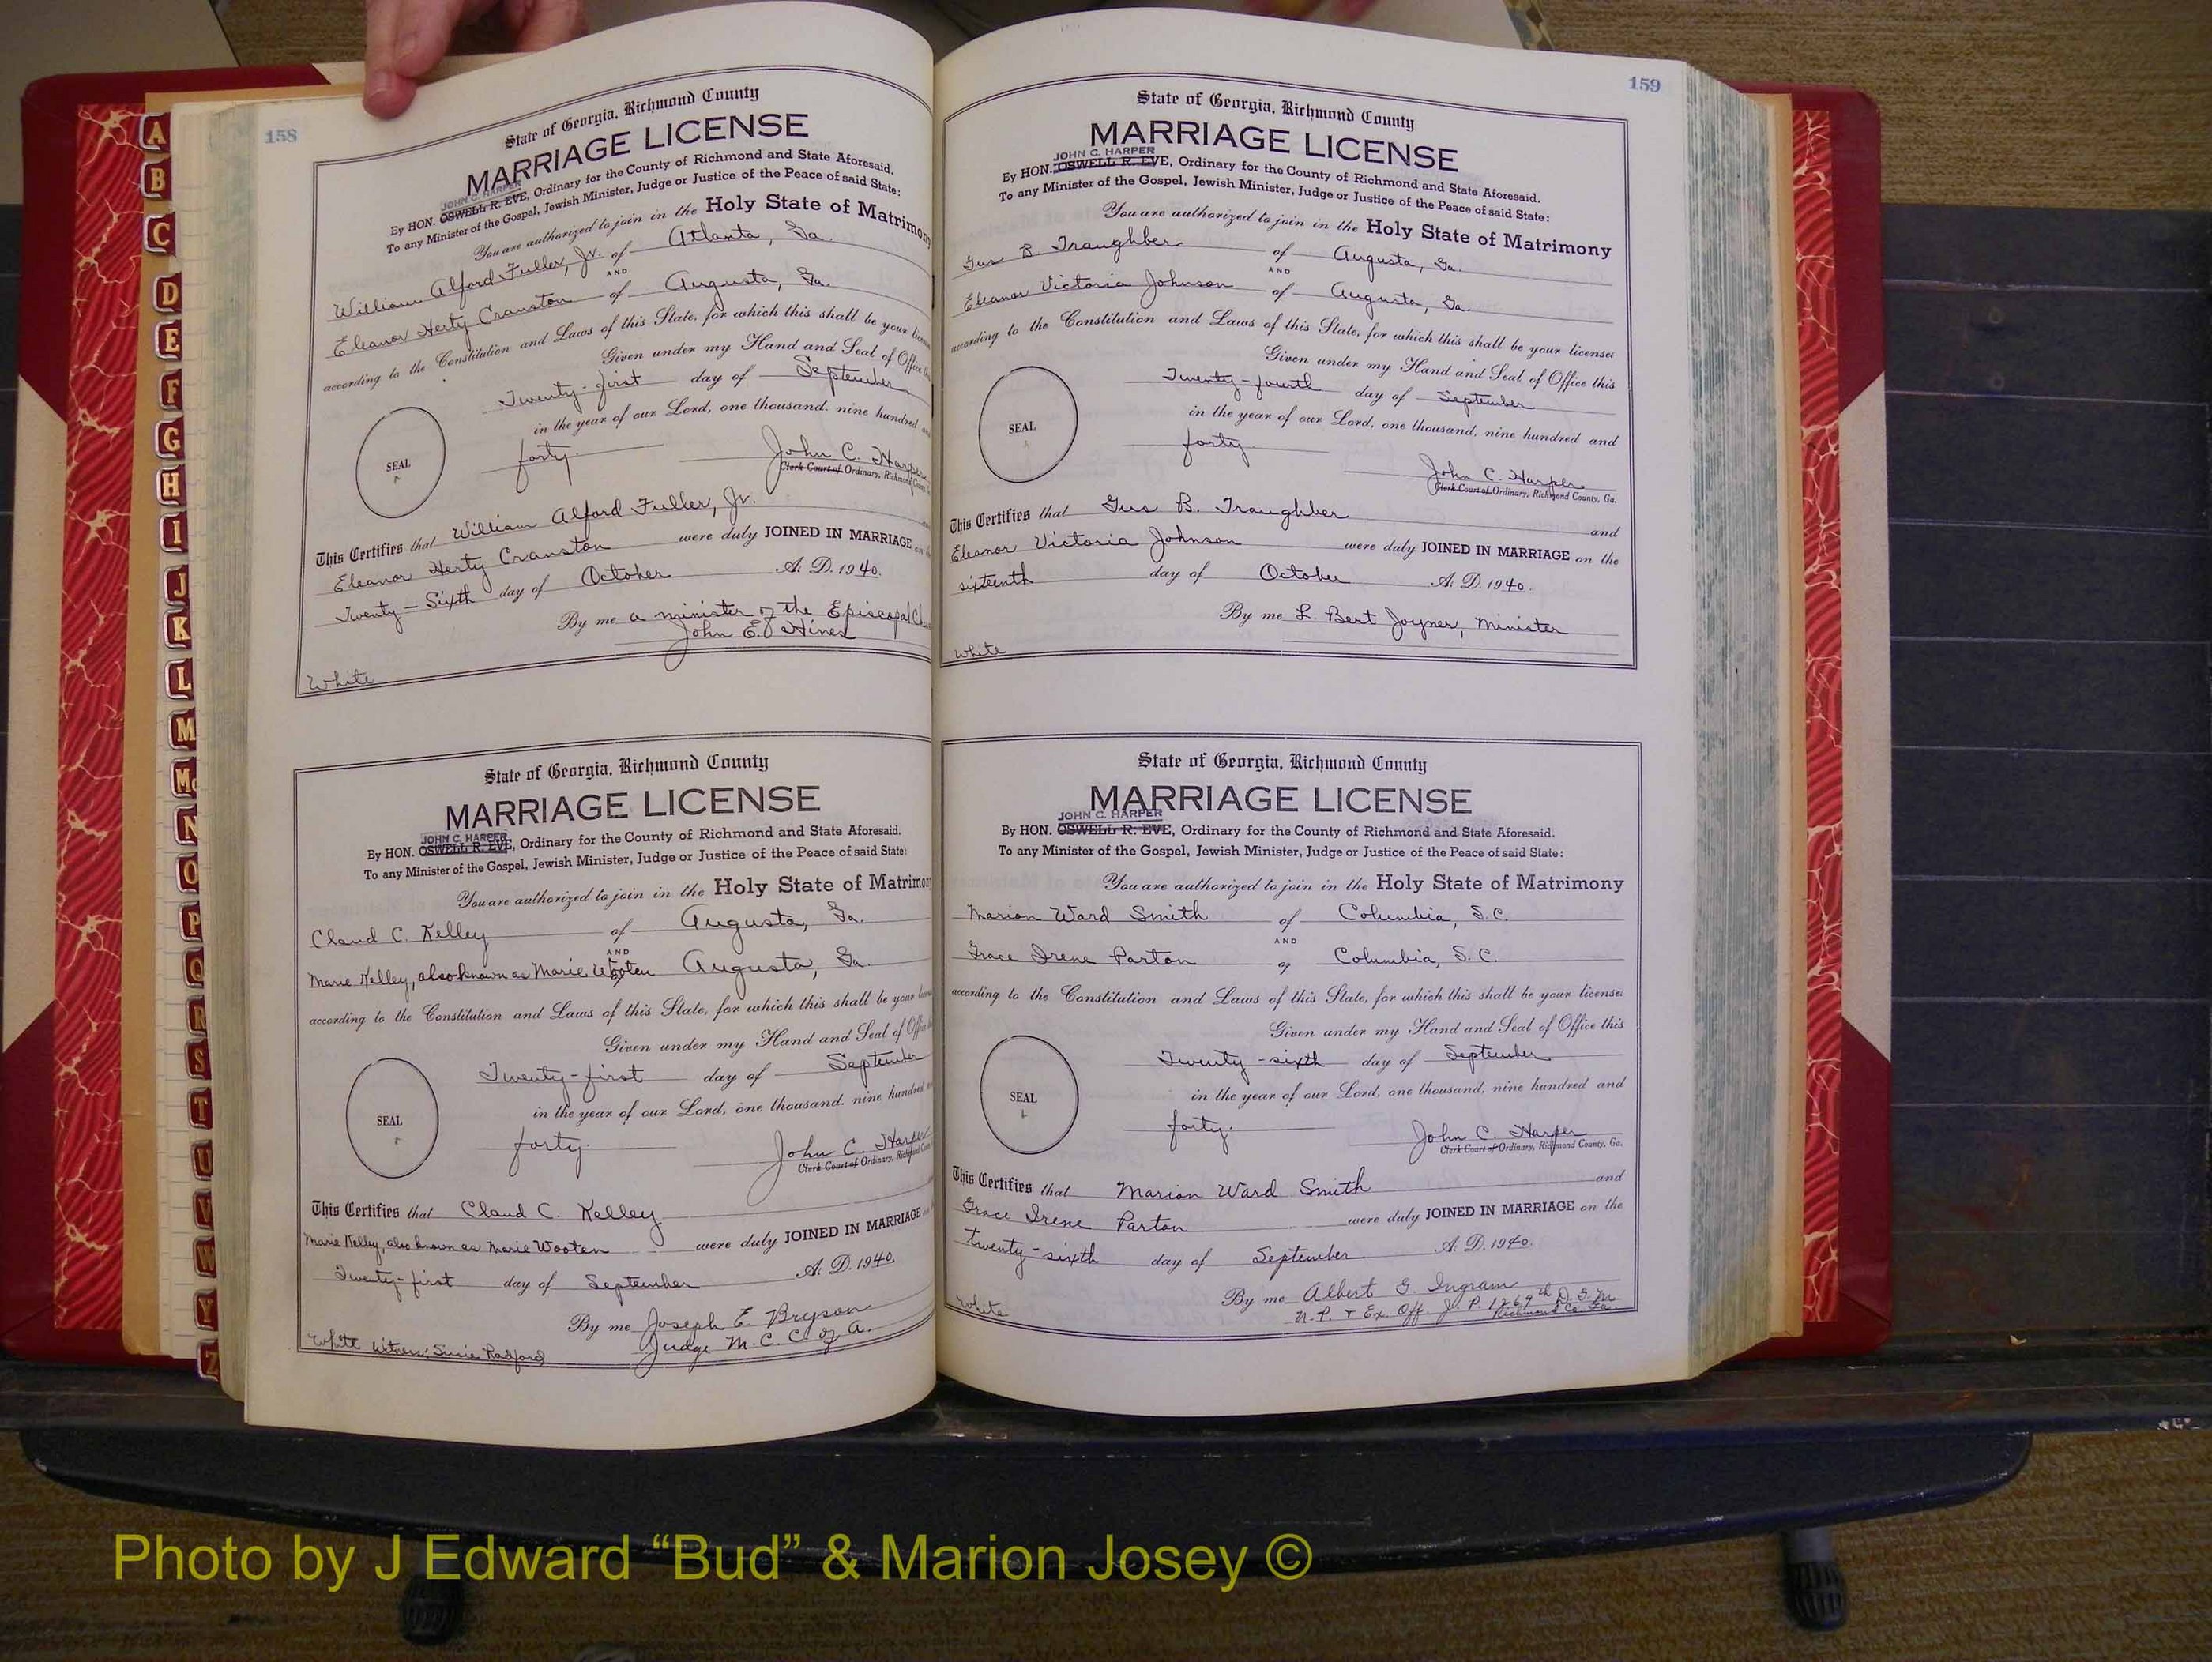 158
State of Georgia, Richmond County
MARRIAGE LICENSE
JOHN C. HARPER
By HON. OSWELL R. EVE, Ordinary for the County of Richmond and State Aforesaid.
To any Minister of the Gospel, Jewish Minister, Judge or Justice of the Peace of said State:
You are authorized to join in the Holy State of Matrimony
William Alford Fuller, Jr. of Atlanta, Ga.
AND
Eleanor Herty Cranston of Augusta, Ga.
according to the Constitution and Laws of this State, for which this shall be your
Given under my Hand and Seal of Office
Twenty-first day of September
in the year of our Lord, one thousand. nine hundred
forty.
John C. Harper
Clerk Court of Ordinary, Richmond
SEAL
This Certifies that William Alford Fuller, Jr.
Eleanor Herty Cranston were duly JOINED IN MARRIAGE
Twenty-Sixth day of October A. D. 1940.
By me a minister of the Episcopal
John E. Hines
White
State of Georgia, Richmond County
MARRIAGE LICENSE
JOHN C. HARPER
By HON. OSWELL R. EVE, Ordinary for the County of Richmond and State Aforesaid.
To any Minister of the Gospel, Jewish Minister, Judge or Justice of the Peace of said State:
You are authorized to join in the Holy State of Matrimo
Claud C. Kelley of Augusta, Ga.
AND
Marie Kelley, also known as Marie Wooten of Augusta, Ga.
according to the Constitution and Laws of this State, for which this shall be your
Given under my Hand and Seal of Office
Twenty-first day of September
in the year of our Lord, one thousand. nine hundred
forty.
John C. Harper
Clerk Court of Ordinary, Richmond
SEAL
This Certifies that Claud C. Kelley
Marie Kelley, also known as Marie Wooten were duly JOINED IN MARRIAGE
Twenty-first day of September A. D. 1940.
By me Joseph E. Bryson
Judge M. C. C. of A.
White Witness: Susie Radford
159
State of Georgia, Richmond County
MARRIAGE LICENSE
JOHN C. HARPER
By HON. OSWELL R. EVE, Ordinary for the County of Richmond and State Aforesaid.
To any Minister of the Gospel, Jewish Minister, Judge or Justice of the Peace of said State:
You are authorized to join in the Holy State of Matrimony
Gus B. Traughber of Augusta, Ga.
AND
Eleanor Victoria Johnson of Augusta, Ga.
according to the Constitution and Laws of this State, for which this shall be your license:
Given under my Hand and Seal of Office this
Twenty-fourth day of September
in the year of our Lord, one thousand, nine hundred and
forty.
John C. Harper
Clerk Court of Ordinary, Richmond County, Ga.
SEAL
This Certifies that Gus B. Traughber and
Eleanor Victoria Johnson were duly JOINED IN MARRIAGE on the
sixteenth day of October A. D. 1940.
By me L. Bert Joyner, Minister
White
State of Georgia, Richmond County
MARRIAGE LICENSE
JOHN C. HARPER
By HON. OSWELL R. EVE, Ordinary for the County of Richmond and State Aforesaid.
To any Minister of the Gospel, Jewish Minister, Judge or Justice of the Peace of said State:
You are authorized to join in the Holy State of Matrimony
Marion Ward Smith of Columbia, S.C.
AND
Grace Irene Parton of Columbia, S. C.
according to the Constitution and Laws of this State, for which this shall be your license:
Given under my Hand and Seal of Office this
Twenty-sixth day of September
in the year of our Lord, one thousand, nine hundred and
forty.
John C. Harper
Clerk Court of Ordinary, Richmond County, Ga.
SEAL
This Certifies that Marion Ward Smith and
Grace Irene Parton were duly JOINED IN MARRIAGE on the
twenty-sixth day of September A. D. 1940.
By me Albert G. Ingram
N. P. & Ex. Off. J. P. 1269th D. G. M.
Richmond Co. Ga.
White
A
B
C
D
E
F
G
H
I
J
K
L
M
Mc
N
O
P
Q
R
S
T
U
V
W
Y
Z
Photo by J Edward “Bud” & Marion Josey ©